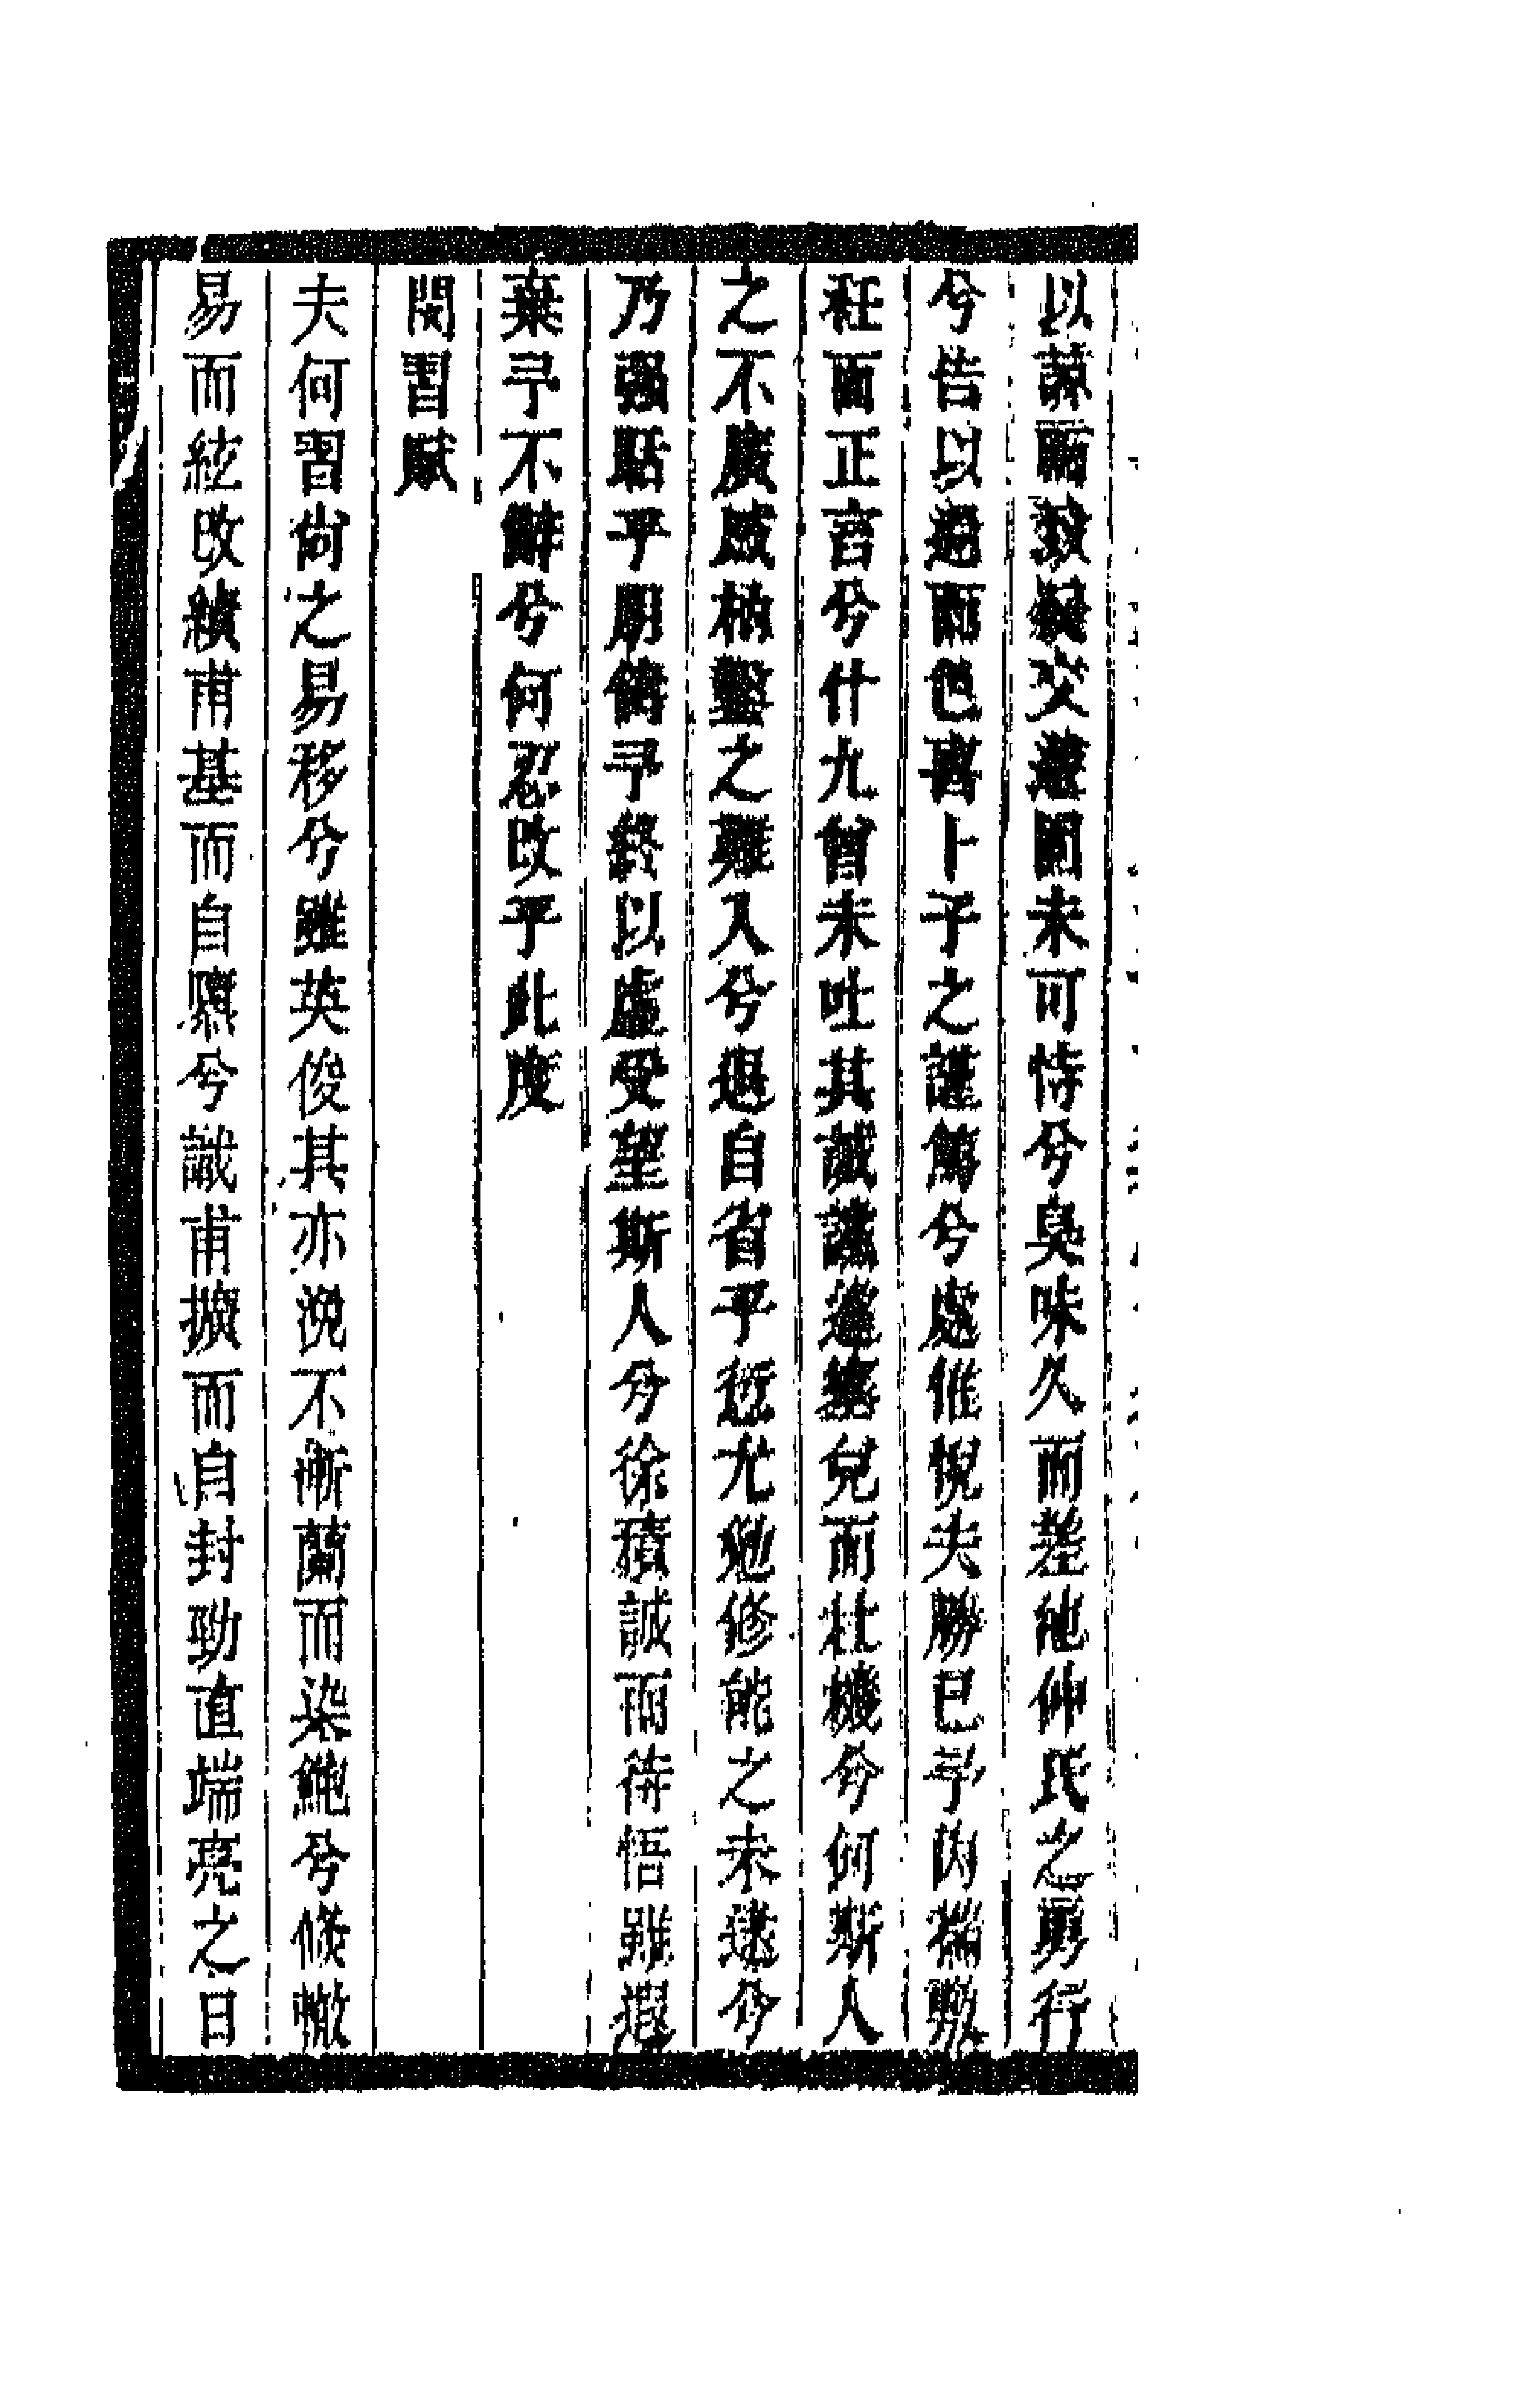 以諒晤致疑交濃固未可恃兮臭味久而差池仲氏之勇行
兮告以過而色喜卜子之謹篤兮處催悅夫勝已予內揣數
枉面正言兮什九曾未吐其誠讜逢兒而杜機兮何斯人
之不廣威枘鑿之難入兮退自省乎愆尤勉修能之未逮兮
乃强聒乎朋儔予終以虛受望斯人兮徐積誠而待悟雖遐
棄予不辭兮何忍改乎此度
閔習賦
夫何習尙之易移兮雖英俊其亦浼不漸蘭而染鮑兮修轍
易而絃改績甫基而自隳兮識甫擴而自封勁直端亮之日